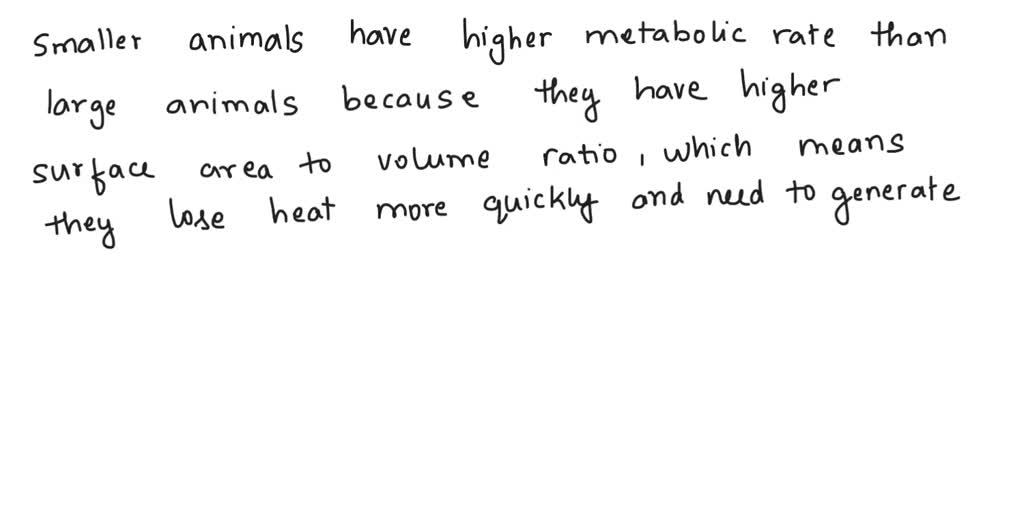 Smaller animals have higher metabolic rate than
large animals because they have higher
surface area to volume ratio, which means
they lose heat more quickly and need to generate